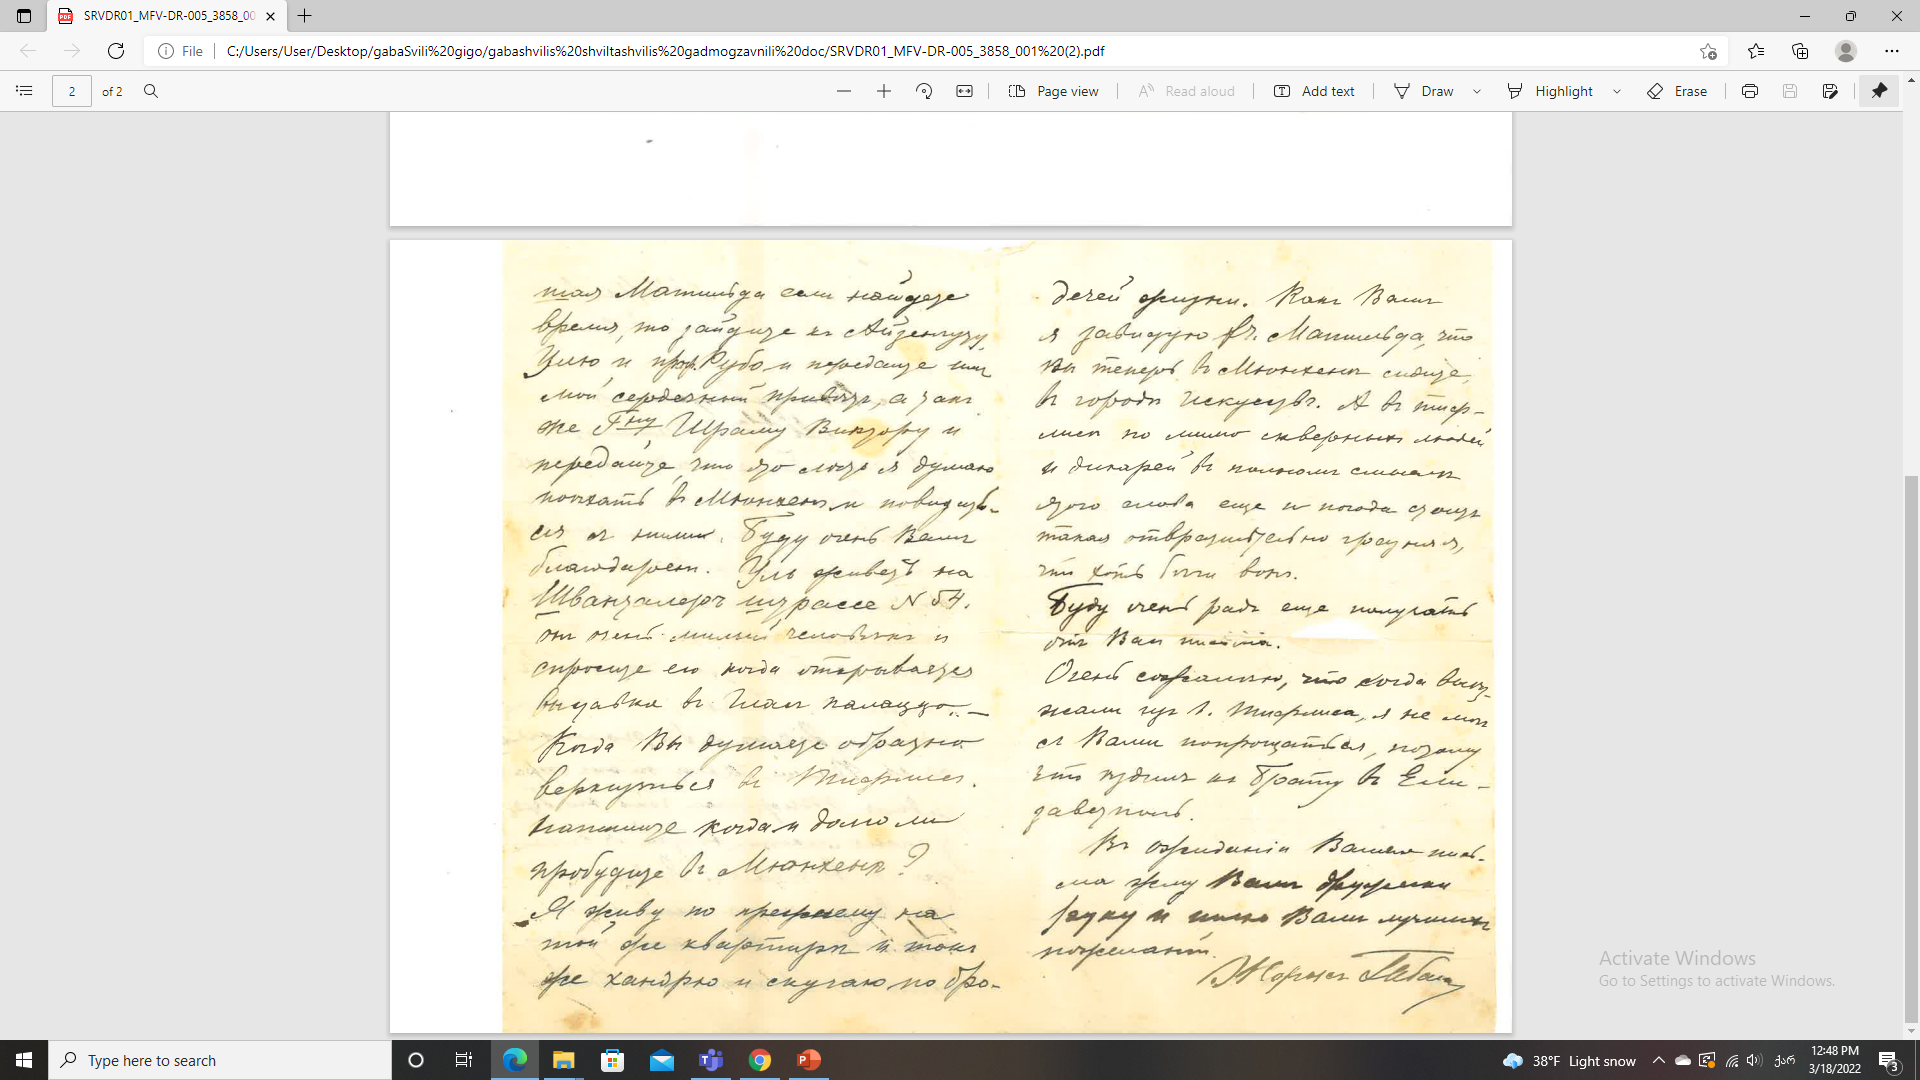 SRVDR01_MFV-DR-005_3858_00
File
C:/Users/User/Desktop/gabaSvili%20gigo/gabashvilis%20shviltashvilis%20gadmogzavnili%20doc/SRVDR01_MFV-DR-005_3858_001%20(2).pdf
2 of 2
Page view
Read aloud
Add text
Draw
Highlight
Erase
тая Матильда если найдете
время, то зайдите къ Айзенгуту
Улю и проф. Рубо и передайте им
мой сердечный привѣтъ, а так
же Гну Шраму Виктору и
передайте, что это лѣто я думаю
поѣхать въ Мюнхенъ и повидать-
ся съ ними. Буду очень Вамъ
благодаренъ. Уль живетъ на
Шванталеръ штрассе N 54.
Он очень милый человѣкъ и
спросите его когда открывается
выставка въ Гласъ палаццо. —
Когда Вы думаете обратно
вернуться въ Тифлисъ.
напишите когда и долго ли
пробудите въ Мюнхенѣ?
Я живу по прежнему на
той же квартирѣ и такъ
же хандрю и скучаю по бро-
дячей жизни. Какъ Вамъ
я завидую Фр. Матильда, что
Вы теперь въ Мюнхенѣ сидите,
въ городѣ искусувъ. А в Тиф-
лисѣ по мимо скверныхъ людей
и дикарей въ полномъ смыслѣ
этого слова еще и погода стоитъ
такая отвратительно грязная,
что хоть бѣги вонъ.
Буду очень радъ еще получать
отъ Вас письма.
Очень сожалѣю, что когда выѣз-
жали изъ г. Тифлиса, я не могъ
съ Вами попрощаться, потому
что ѣздилъ къ брату въ Ели-
заветполь.
Въ ожиданіи Вашего пись-
ма жму Вамъ дружески
руку и шлю Вамъ лучшихъ
пожеланій.
Activate Windows
Go to Settings to activate Windows.
Type here to search
38°F Light snow
ქარ
12:48 PM
3/18/2022
3